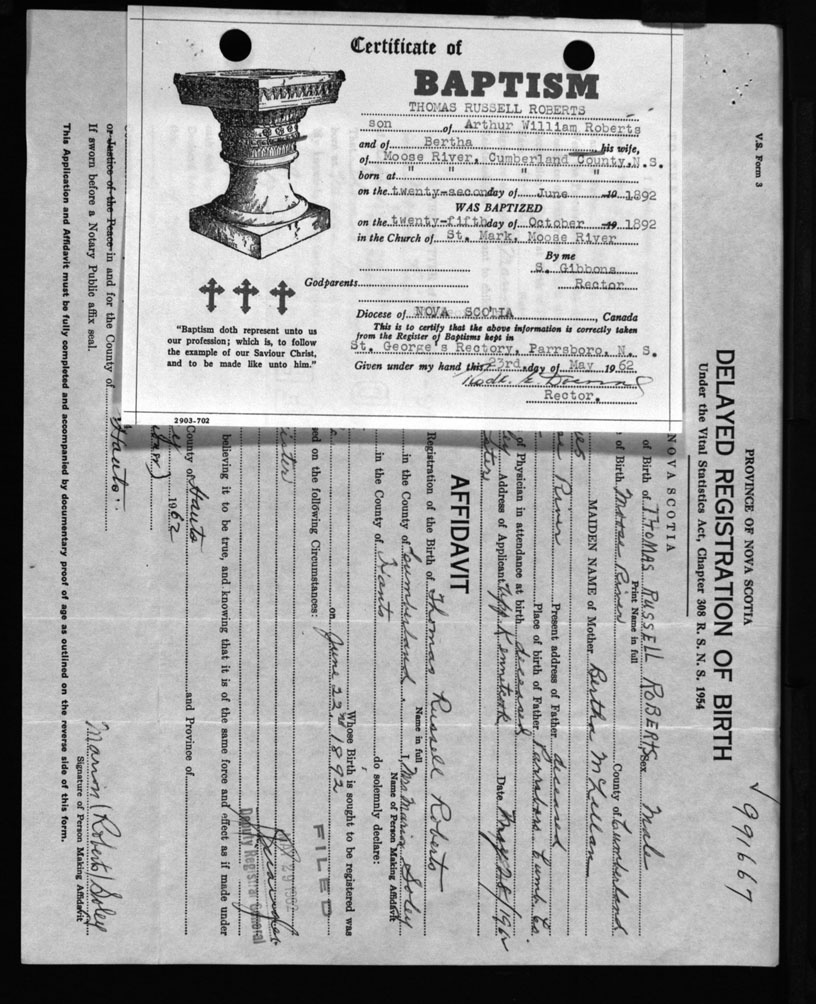 Certificate of
BAPTISM
THOMAS RUSSELL ROBERTS
son of Arthur William Roberts
and of Bertha his wife,
of Moose River, Cumberland County, N.S.
born at " " " "
on the twenty-second day of June 19 1892
WAS BAPTIZED
on the twenty-fifth day of October 19 1892
in the Church of St. Mark, Moose River
By me
S. Gibbons
Godparents Rector
Diocese of NOVA SCOTIA, Canada
This is to certify that the above information is correctly taken
from the Register of Baptisms kept in
St. George's Rectory, Parrsboro, N. S.
Given under my hand this 23rd day of May 1962
Rector.
"Baptism doth represent unto us
our profession; which is, to follow
the example of our Saviour Christ,
and to be made like unto him."
2903-702
V.S. Form 3
√ 991667
PROVINCE OF NOVA SCOTIA
DELAYED REGISTRATION OF BIRTH
Under the Vital Statistics Act, Chapter 308 R. S. N. S. 1954
NOVA SCOTIA
of Birth of THOMAS RUSSELL ROBERTS Sex Male
Print Name in full
of Birth Moose River County of Cumberland
MAIDEN NAME of Mother Bertha McLellan
River Present address of Father deceased
Place of birth of Father Parrsboro Cumb. Co.
of Physician in attendance at birth deceased
Address of Applicant Kennetcook Date May 28/1962
AFFIDAVIT
Registration of the Birth of Thomas Russell Roberts
Name in full
in the County of Cumberland, I, Mrs Marion Soley
Name of Person Making Affidavit
in the County of Hants do solemnly declare:
Whose Birth is sought to be registered was
on June 22nd, 1892
ed on the following Circumstances:
FILED
29 1962
Deputy Registrar General
believing it to be true, and knowing that it is of the same force and effect as if made under
County of Hants and Province of
1962
Marion (Roberts) Soley
Signature of Person Making Affidavit
Hants
or Justice of the Peace in and for the County of
If sworn before a Notary Public affix seal.
This Application and Affidavit must be fully completed and accompanied by documentary proof of age as outlined on the reverse side of this form.